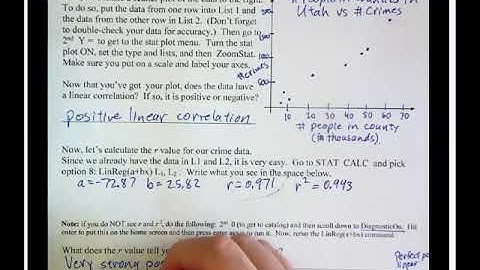 To do so, put the data from one row into List 1 and
the data from the other row in List 2. (Don't forget
to double-check your data for accuracy.) Then go to
2nd Y = to get to the stat plot menu. Turn the stat
plot ON, set the type and lists, and then ZoomStat.
Make sure you put on a scale and label your axes.
Utah vs # Crimes
# Crimes
10 20 30 40 50 60 70
# people in county
(in thousands)
Now that you've got your plot, does the data have
a linear correlation? If so, it is positive or negative?
positive linear correlation
Now, let's calculate the r value for our crime data.
Since we already have the data in L1 and L2, it is very easy. Go to STAT CALC and pick
option 8: LinReg(a+bx) L1, L2 . Write what you see in the space below.
a=-72.87 b=25.82 r=0.971 r²=0.943
Note: if you do NOT see r and r², do the following: 2nd 0 (to get to catalog) and then scroll down to DiagnosticOn. Hit
enter to put this on the home screen and then press enter again to run it. Now, rerun the LinReg(a+bx) command.
What does the r value tell you
Very strong pos